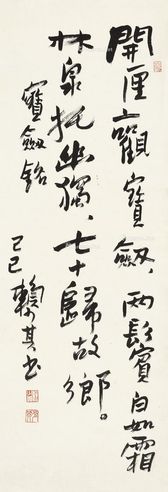 開匣觀寶劔、兩鬢白如霜
林泉托幽獨、七十歸故鄉。
寶劔銘
己巳 賴少其书